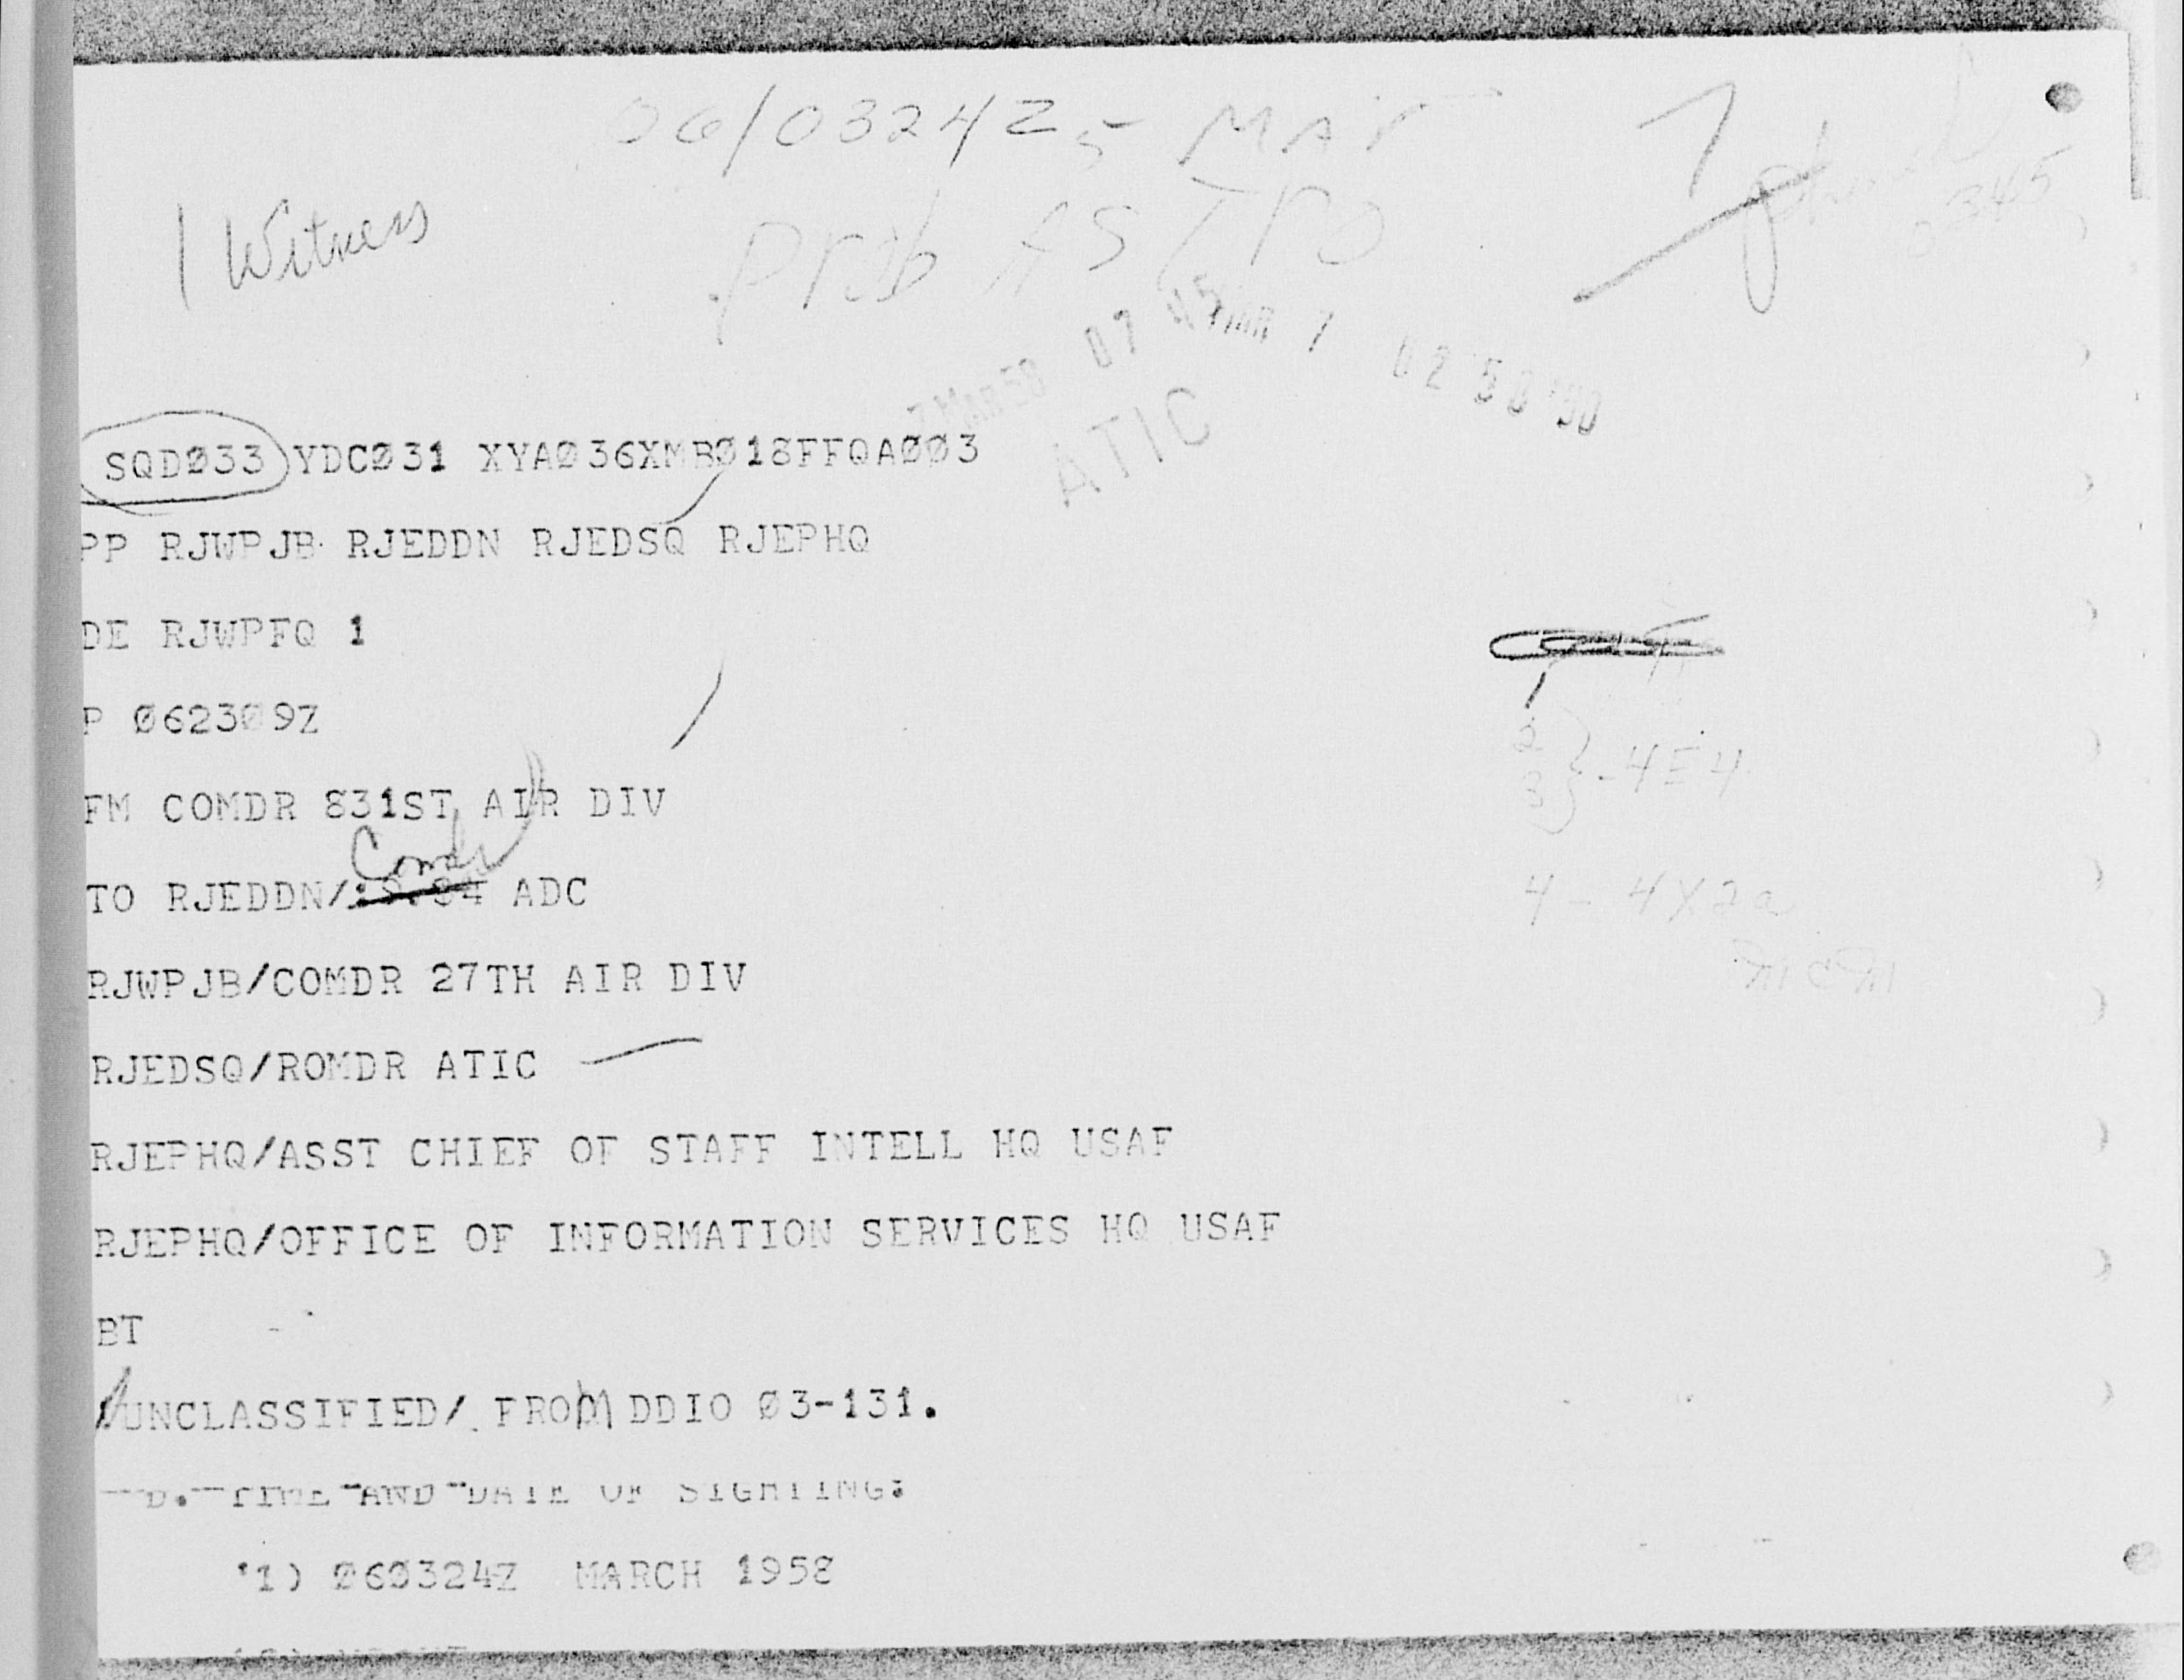 06/0324Z
1 Witness
Prob ASTRO
ATIC
SQDØ33 YDCØ31 XYAØ36XMBØ18FFQAØØ3
PP RJWPJB RJEDDN RJEDSQ RJEPHQ
DE RJWPFQ 1
P Ø623Ø9Z
FM COMDR 831ST AIR DIV
Comdr
TO RJEDDN/ ADC
RJWPJB/COMDR 27TH AIR DIV
RJEDSQ/ROMDR ATIC
RJEPHQ/ASST CHIEF OF STAFF INTELL HQ USAF
RJEPHQ/OFFICE OF INFORMATION SERVICES HQ USAF
BT
/UNCLASSIFIED/ FROM DDIO Ø3-131.
D. TIME AND DATE OF SIGHTING:
1) Ø6Ø324Z MARCH 1958
1
2
3 } - 4E4
4 - 4X2a